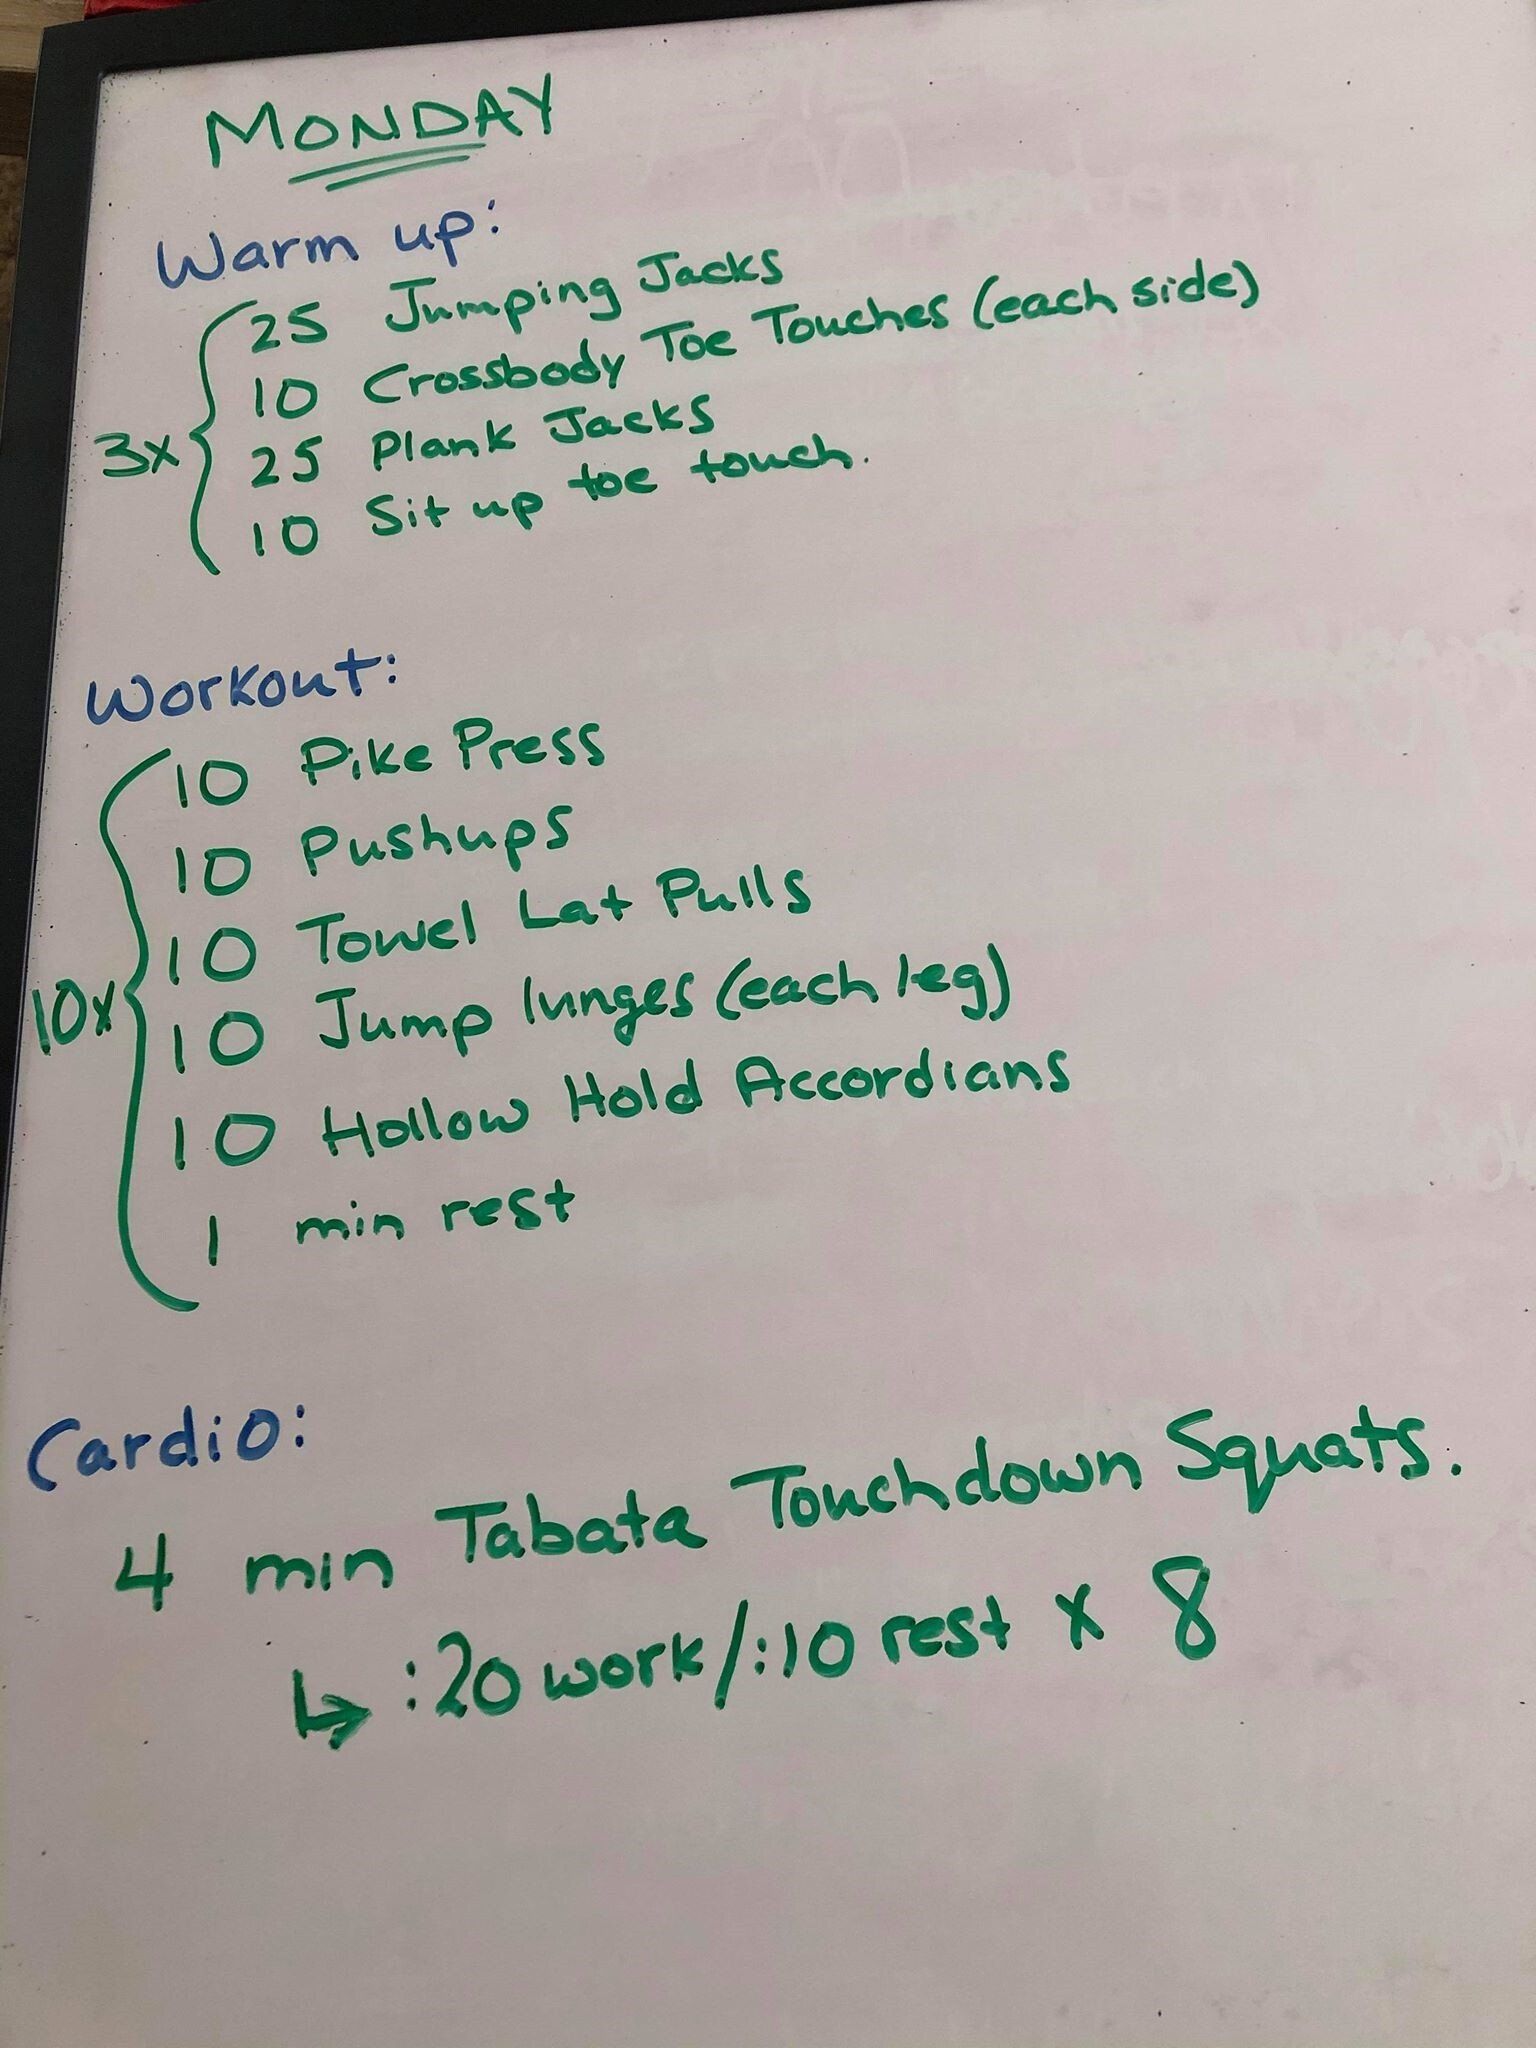 MONDAY
Warm up:
25 Jumping Jacks
10 Crossbody Toe Touches (each side)
3x
25 Plank Jacks
10 Sit up toe touch.
Workout:
10 Pike Press
10 Pushups
10 Towel Lat Pulls
10x
10 Jump lunges (each leg)
10 Hollow Hold Accordians
1 min rest
Cardio:
4 min Tabata Touchdown Squats.
↳ :20 work/:10 rest x 8